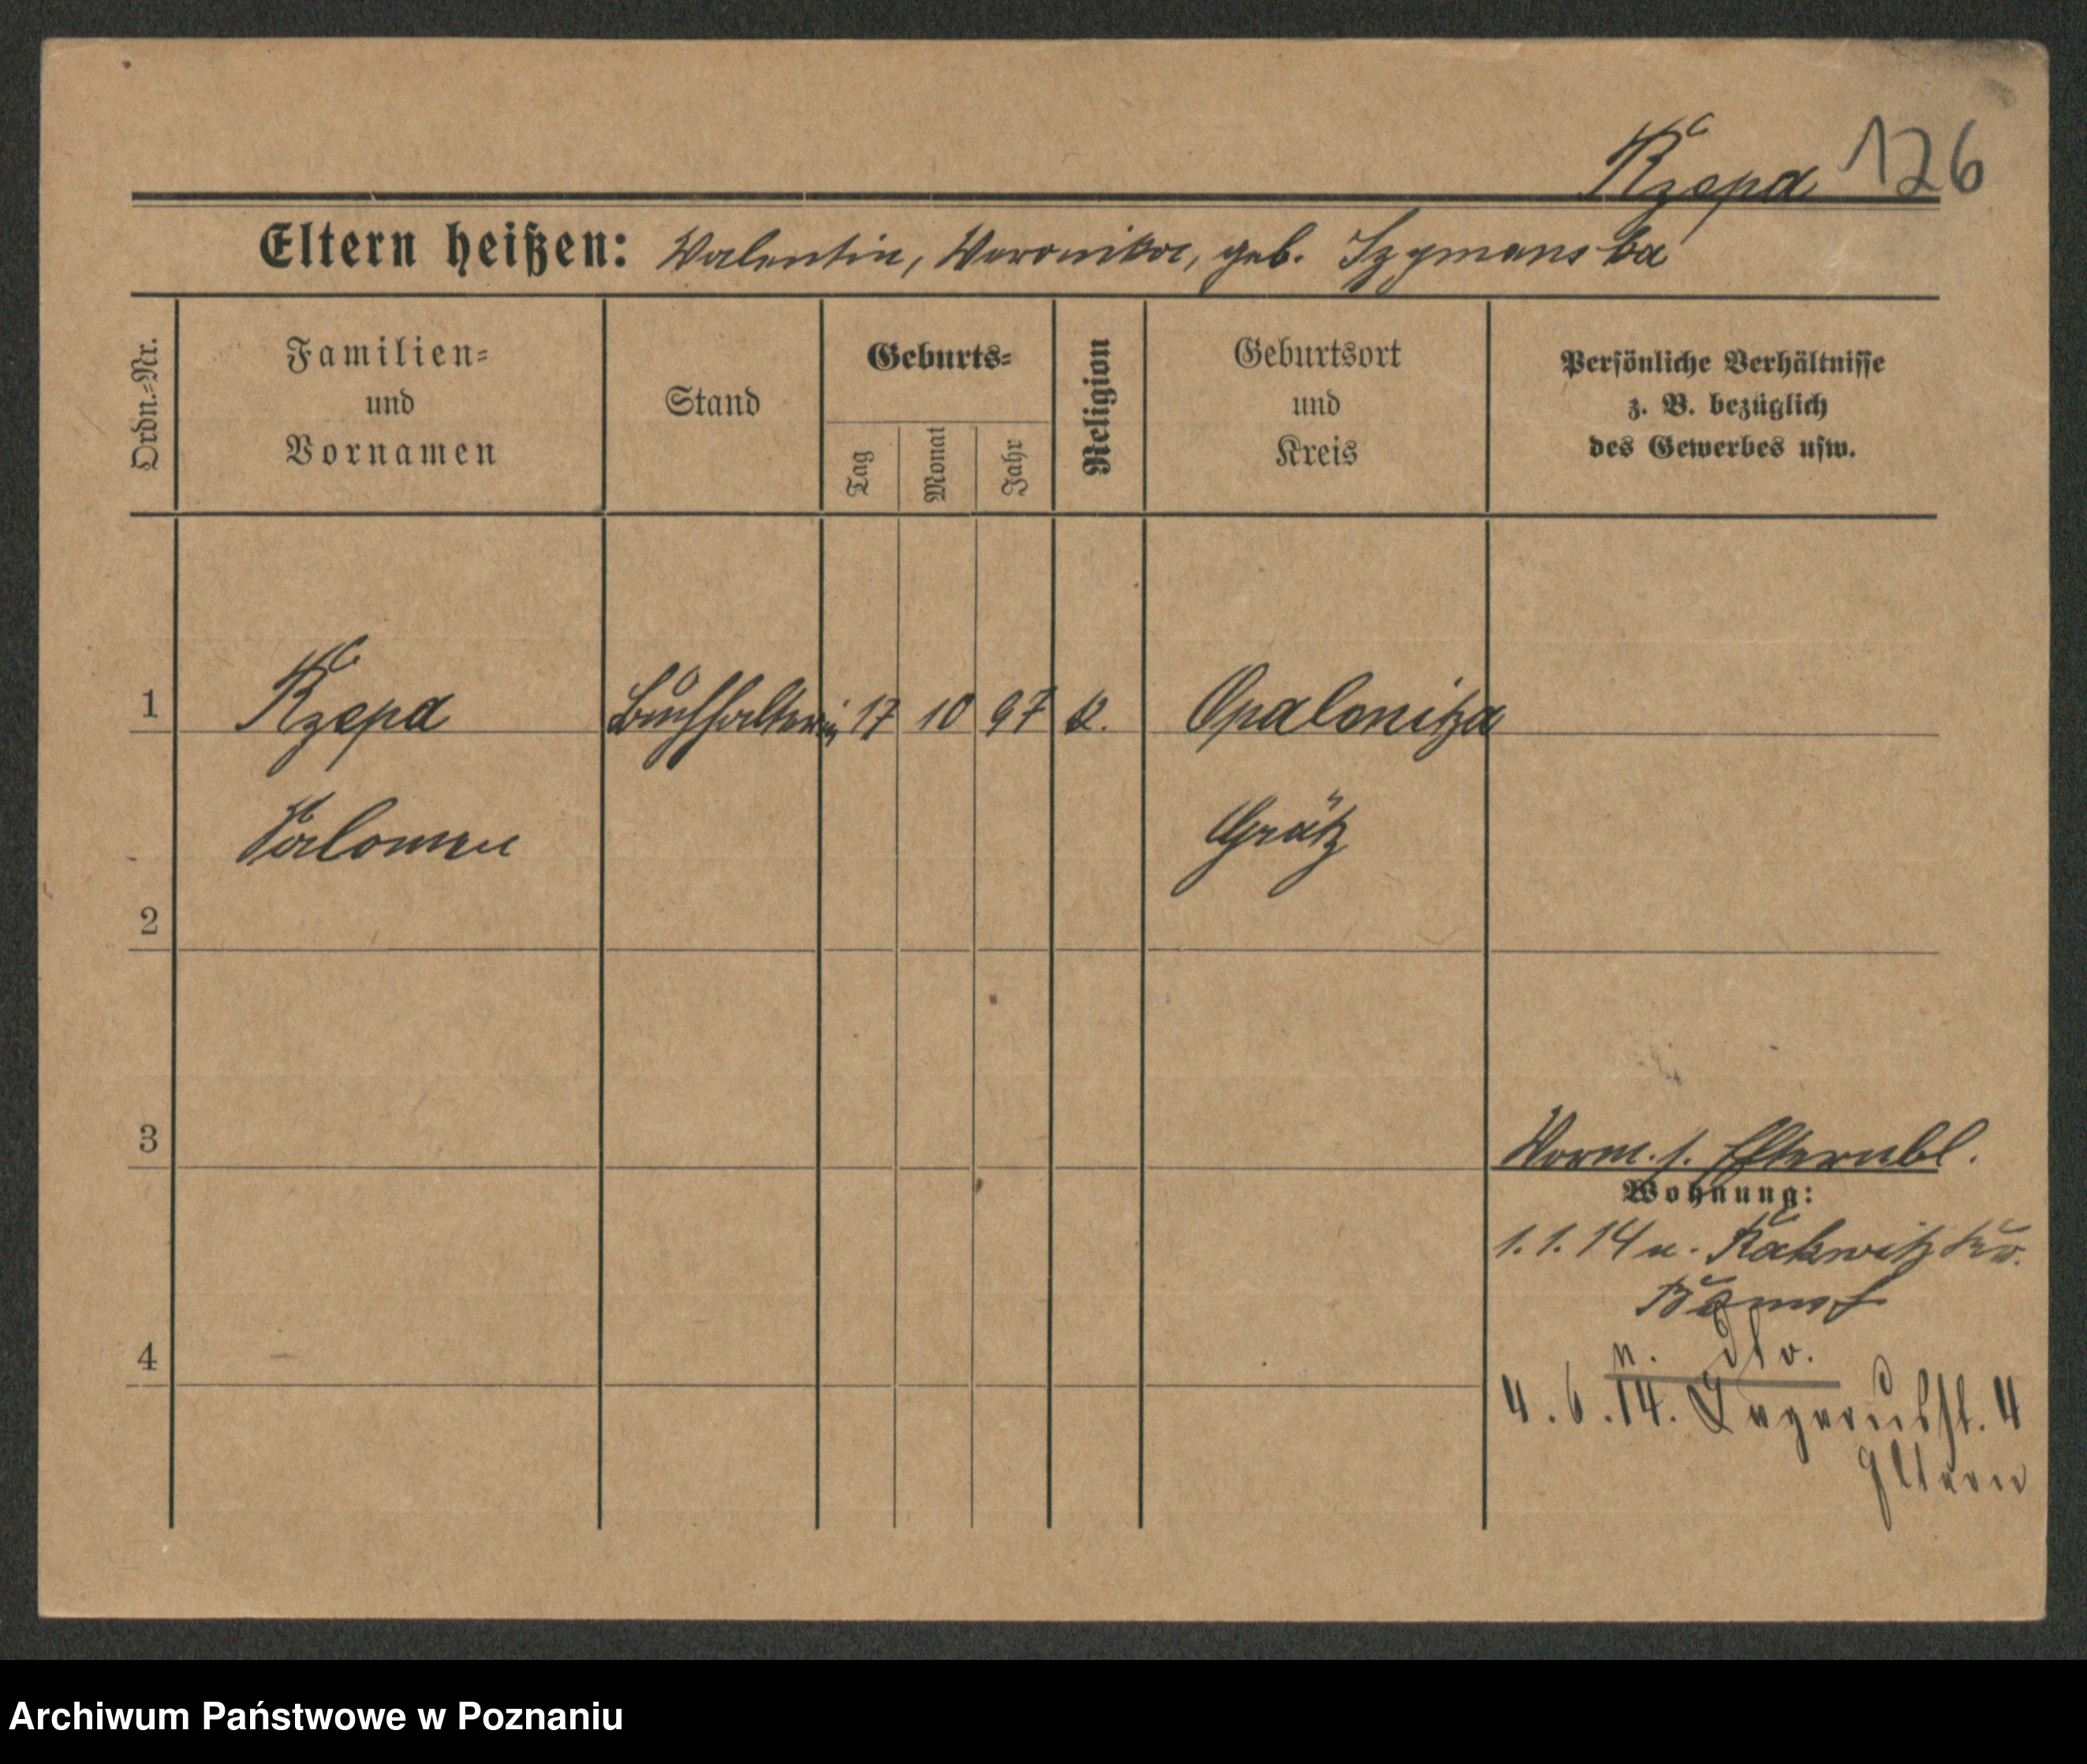 Rzepa 126
Eltern heißen: Valentin, Veronika, geb. Szymanska
Ordn.=Nr.
Familien=
und
Vornamen
Stand
Geburts=
Tag
Monat
Jahr
Religion
Geburtsort
und
Kreis
Persönliche Verhältnisse
z. B. bezüglich
des Gewerbes usw.
1 Rzepa Buchhalterin 17 10 97 k. Opalenitza
Salomea Grätz
2
3 Vorm. s. Elternbl.
Wohnung:
1.1.14 n. Rakwitz Kr.
Bomst
4 n. dtv.
4.6.14. 4
Eltern
Archiwum Państwowe w Poznaniu